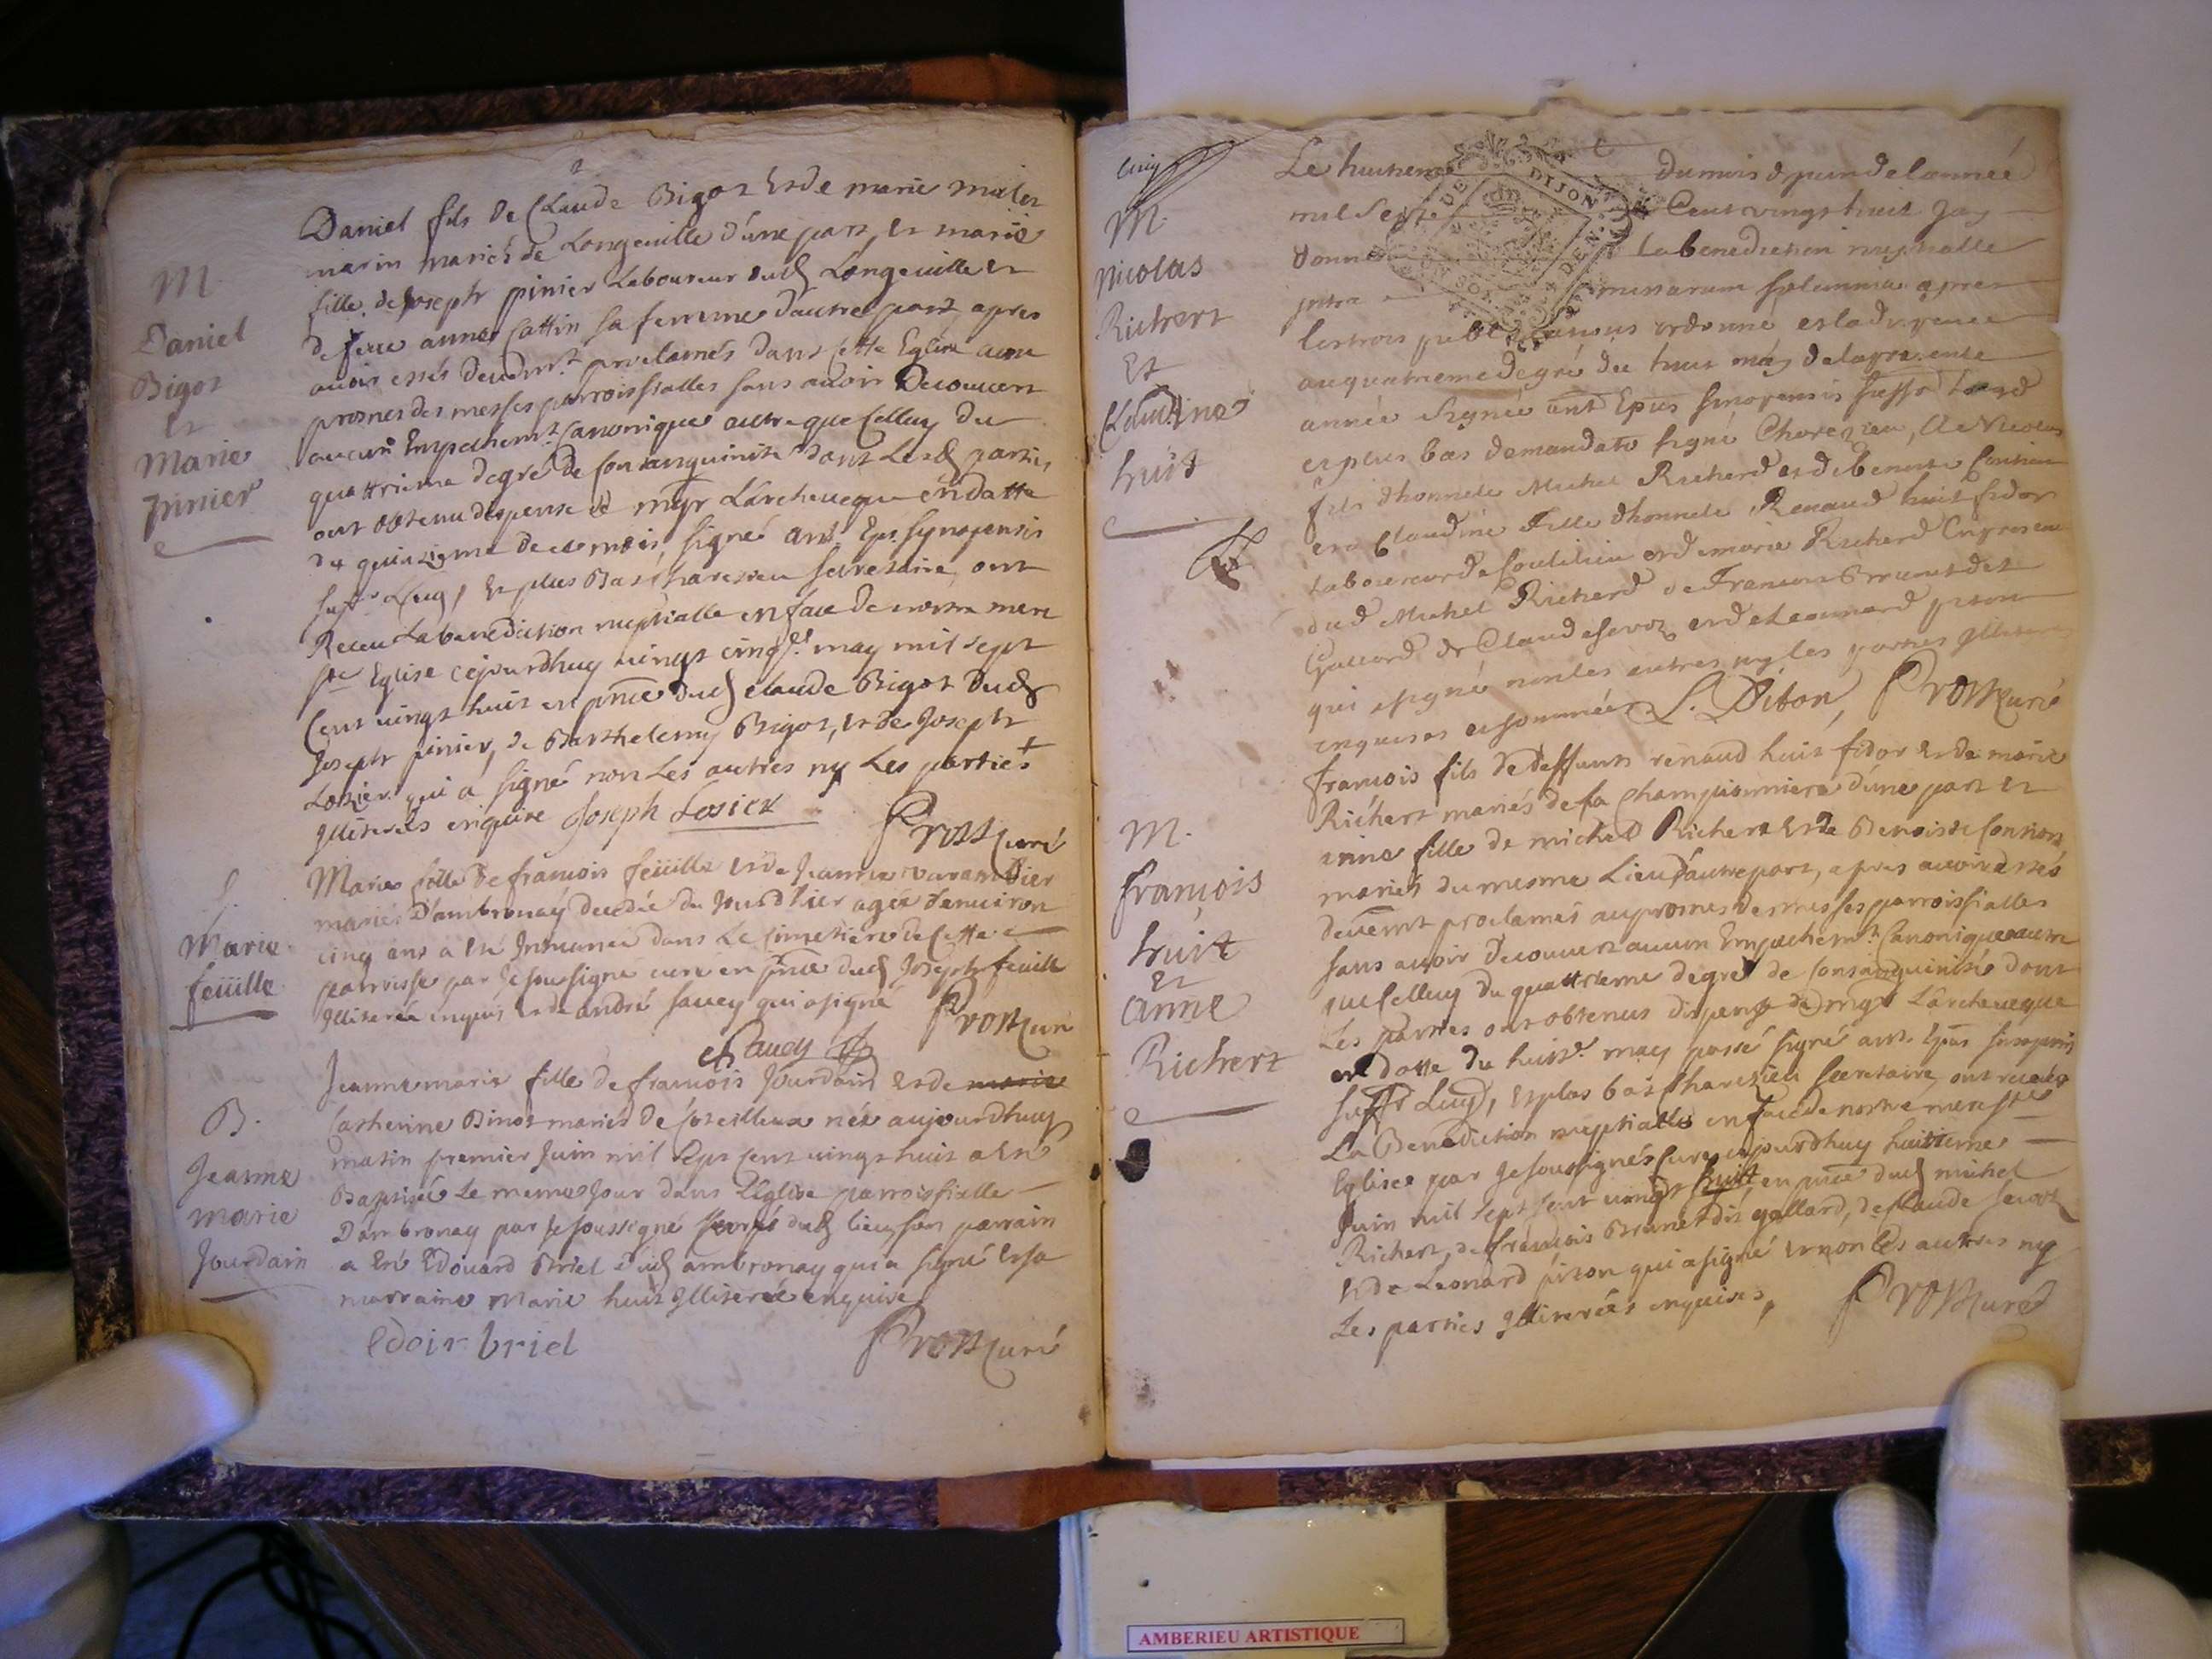 M
Daniel
Bigot
Et
Marie
pinier
Daniel fils de Claude Bigot Et de marie
marin mariés de Longeuille d'une part, Et marie
fille de Joseph pinier Laboureur dud Longeuille Et
de feue anne Cattin sa femme d'autre part, apres
avoir estés deuemt proclamés dans cette Eglise aux
prosnes des messes parroissialles sans avoir Decouvert
aucun Empechemt Canonique autre que Celluy du
quattrieme degré de Consanguinité dont Lesd parties
ont obtenu dispense de mgr L'archeveque en datte
du quinzieme de ce mois, signé ant. Eps Synopensis
suff. Lug, Et plus Bas Charesieu secretaire, ont
Receu La benediction nuptialle en face de nostre mere
ste Eglise ce jourdhuy vingt cinqe may mil sept
Cent vingt huit en pnce dud Claude Bigot dud
Joseph pinier, de Barthelemy Bigot, Et de Joseph
Losier qui a signé non Les autres ny Les parties
illiterées enquire Joseph Losier
Prost Curé
S.
Marie
feüille
Marie fille de francois feüille Et de Jeanne varambier
mariés D'ambronay decedée du Jour d'hier agée d'environ
cinq ans a Eté Inhumée dans Le Cimetiere de Cette
parroisse par Je soussigné curé en pnce dud Joseph feuille
illiterée enquis Et de andré saucy qui a signé Prost Curé
Saucy
B.
Jeanne
marie
Jourdain
Jeanne marie fille de francois Jourdain Et de marie
Catherine Binot mariés de née aujourdhuy
matin premier Juin mil sept Cent vingt huit a Eté
Baptisée Le meme Jour dans L'Eglise parroissialle
D'ambronay par Je soussigné Curé dud lieu, son parrain
a Eté Edouard Briel dud ambronay qui a signé Et sa
marraine Marie huit illiterée enquire
edoir briel
Prost Curé
cinq
M.
Nicolas
Richert
Et
Claudine
huit
Le huitieme du mois de juin de lannée
mil Sept Cent vingt huit Jay
donné la benediction nuptialle
intra missarum solemnia apres
les trois publications ordonné et la dispence
au quatrieme degré du huit may de la presente
année signée ant Epus sinopensis suffr Lugd
et plus bas de mandato signé Charezieu, A Nicolas
fils dhonnete Michel Richerd et de benoite Contion
et a Claudine Fille dhonnete Renaud huit fidor
Laboureur de et de marie Richerd En presence
dud Michel Richerd de Francois Brunet dit
Gallard de Claude Servoz et de Leonnard piton
qui a signé non les autres ny les parties illiterées
enquises et sommées L. Piton, Prost Curé
M.
francois
huit
Et
anne
Richert
francois fils de deffunts renaud huit fidor Et de marie
Richert mariés de la Championniere d'une part Et
anne fille de michel Richert Et de Benoiste Contion
mariés du mesme Lieu d'autre part, apres avoir estés
deuemt proclamés aux prosnes des messes parroissialles
sans avoir Decouvert aucun Empechemt Canonique autre
que Celluy du quattrieme degré de Consanguinité dont
Les parties ont obtenus dispense de mgr L'archeveque
en datte du huite may passé signé ant. Epus sinopensis
suffr Lugd, Et plus bas Charezieu secretaire, ont receus
La Benediction nuptialle en face de nostre mere ste
Eglise par Je soussigné Curé ce jourdhuy huittieme
Juin mil sept Cent vingt huit en pnce dud michel
Richert, de francois Brunet dit gallard, de Claude servoz
Et de Leonard piton qui a signé Et non Les autres ny
Les parties illiterées enquises, Prost Curé
DE DIJON
AMBERIEU ARTISTIQUE